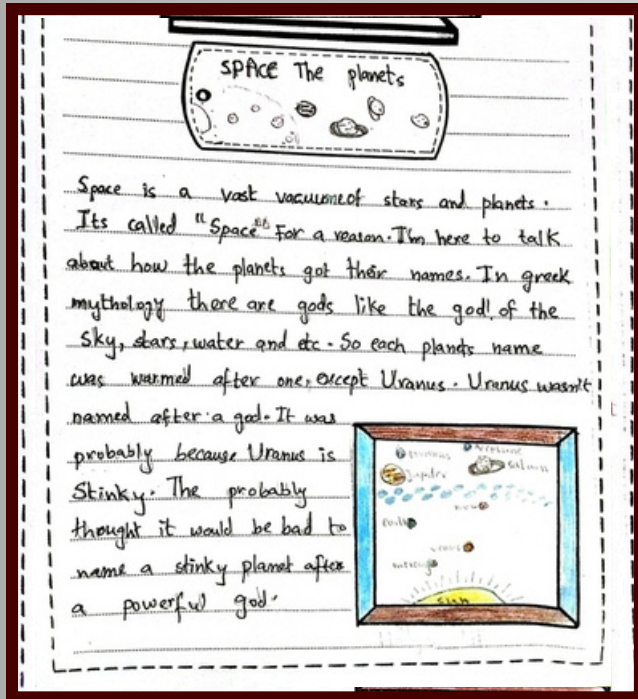 SPACE The planets
Space is a vast vacuume of stars and planets.
Its called "Space" For a reason. I'm here to talk
about how the planets got their names. In greek
mythology there are gods like the god! of the
Sky, stars, water and etc. So each planets name
was warmed after one, except Uranus. Uranus wasn't
named after a god. It was
probably because Uranus is
Stinky. The probably
thought it would be bad to
name a stinky planet after
a powerful god.
Jupiter
Sun